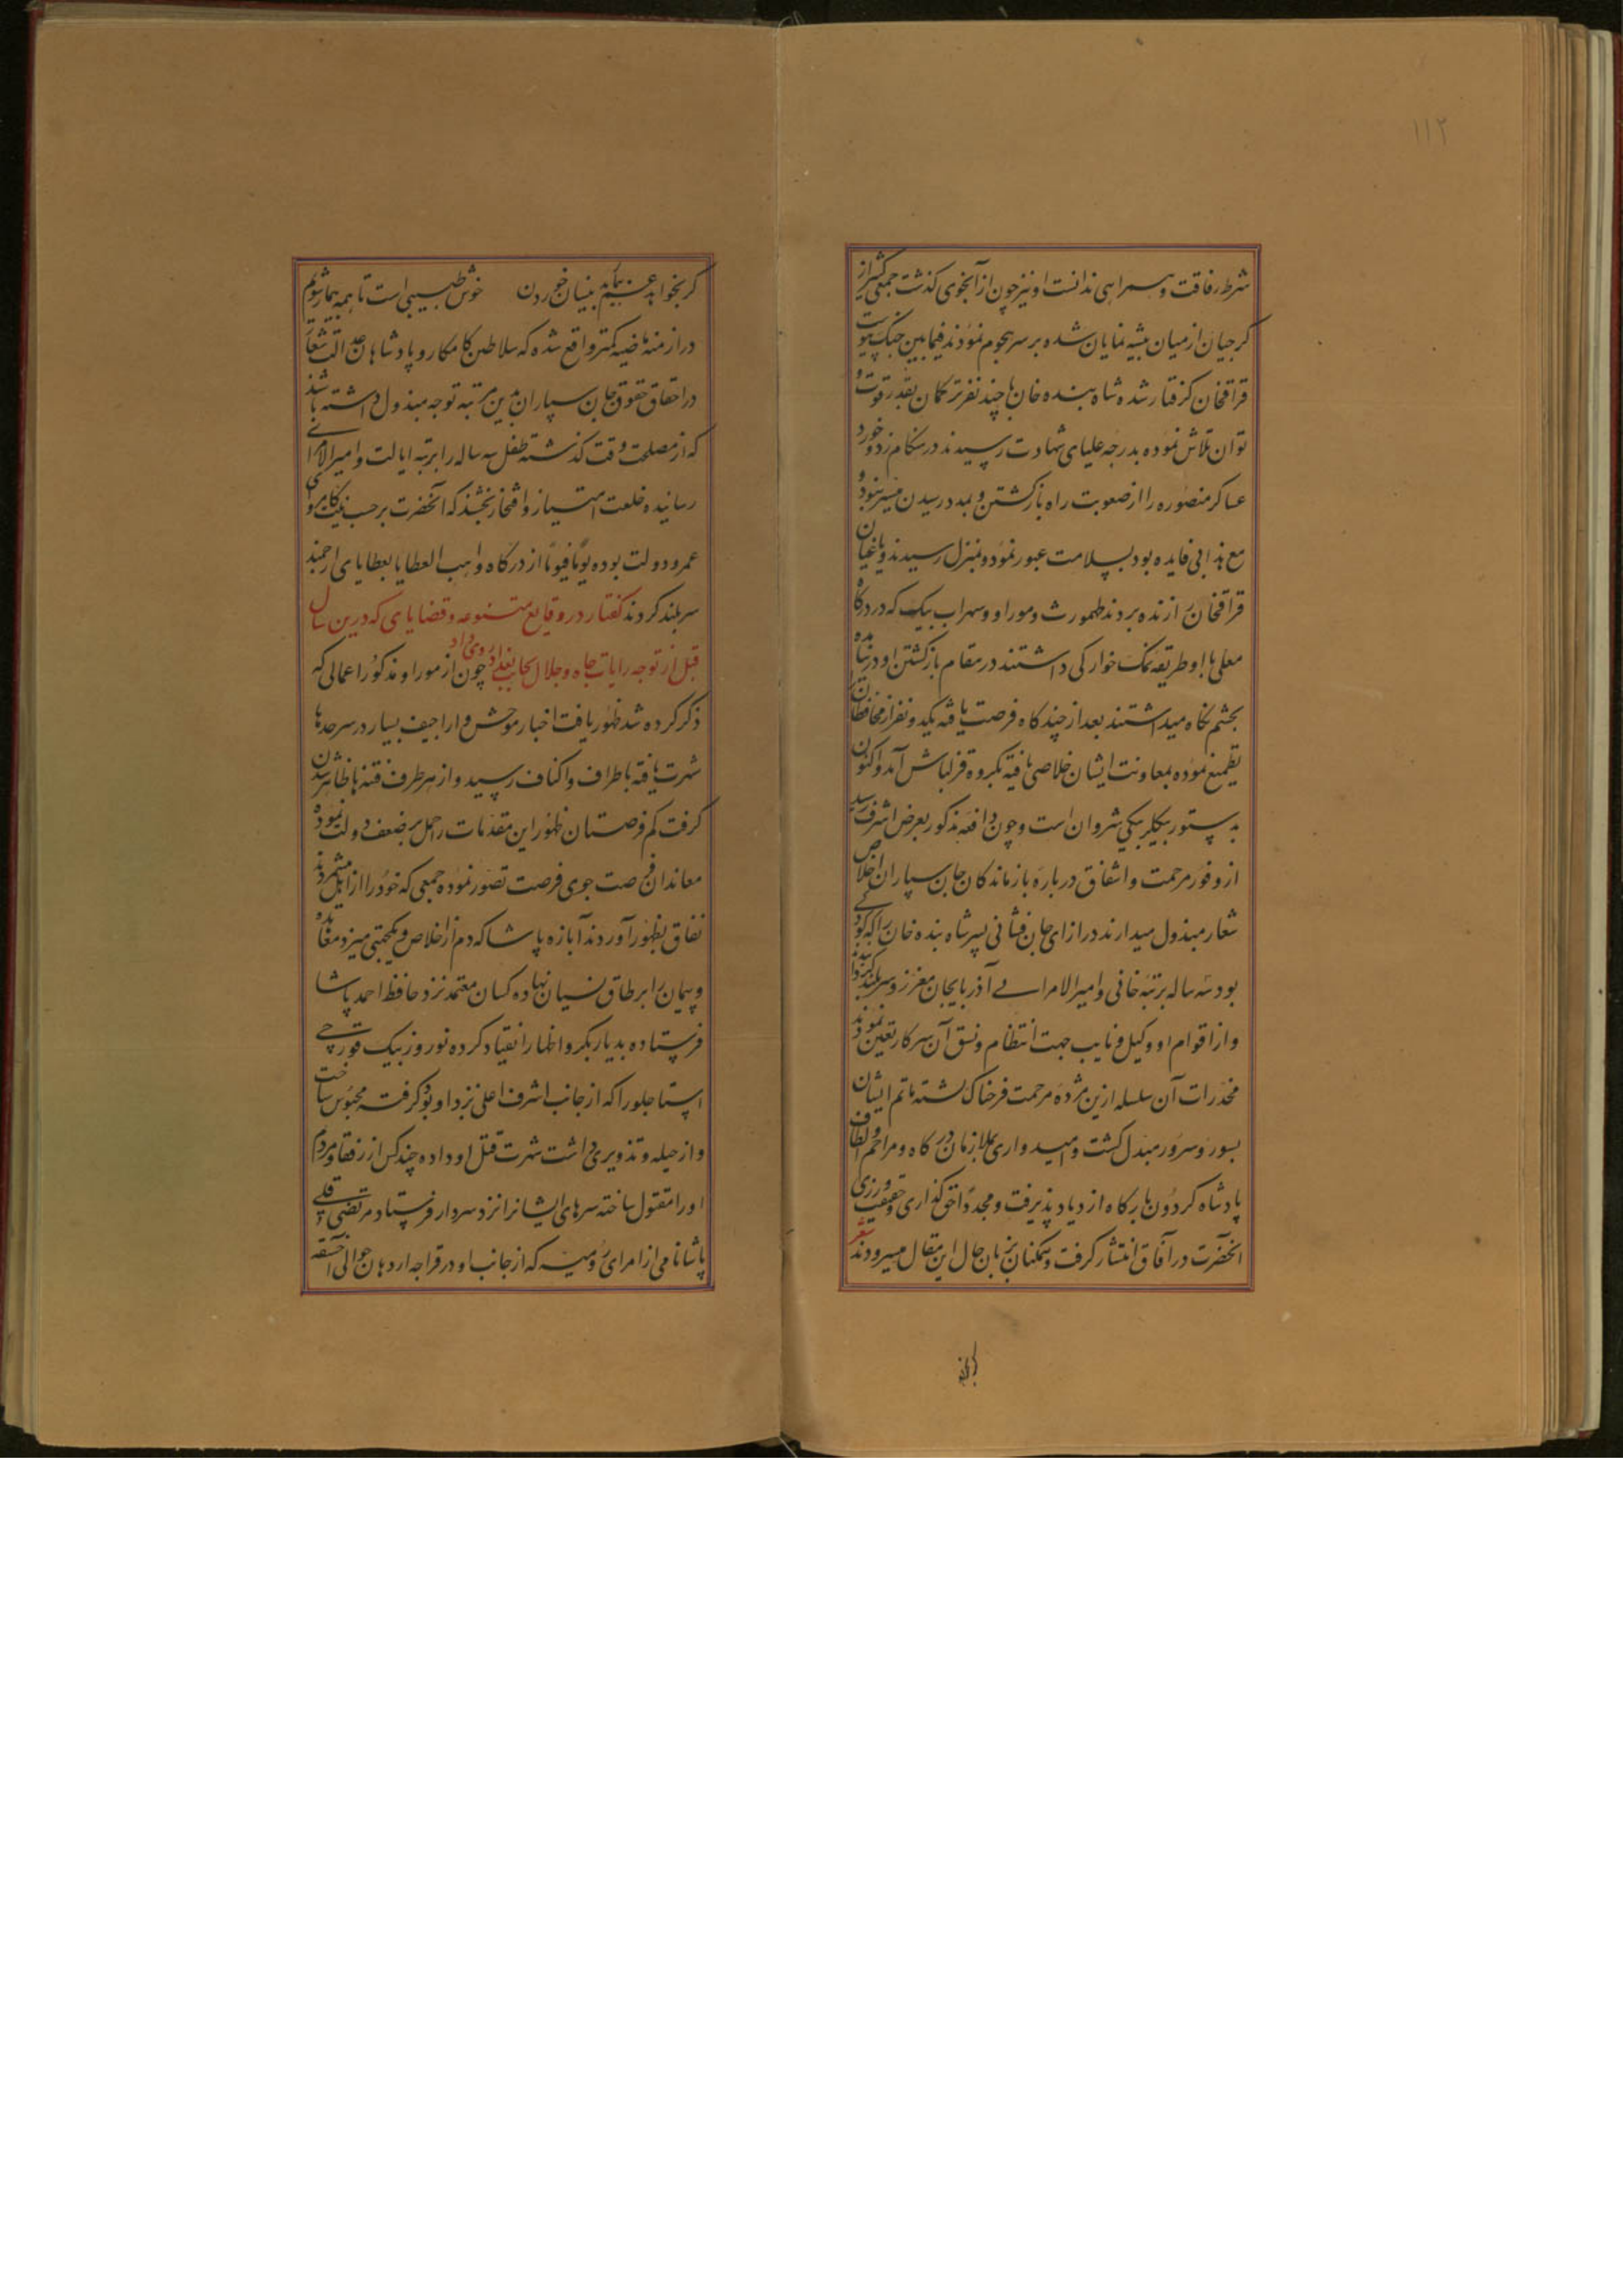 ۱۱۲
شرط رفاقت و همراهی ندانست او نیز چون از آبخوی گذشت جمعی کثیر از
کرجیان از میان بیشه نمایان شده بر سر هجوم نمودند فیمابین جنک پیوست
قراقخان کرفتار شده شاه بنده خان با چند نفر ترکمان بقدر قوت و
توان تلاش نموده بدرجه علیای شهادت رسیدند در هنکام زد و خورد
عساکر منصوره را از صعوبت راه بازکشتن و بمدد رسیدن میسر نبود و
مع هذا بی فایده بود بسلامت عبور نموده بمنزل رسیدند و یاغیان
قراقخان را زنده بردند طهمورث و موراو و سهراب بیک که در درکاه
معلی با او طریقه نمک خوارکی داشتند در مقام بازکشتن او در نیامده
بچشم نکاه میداشتند بعد از چند کاه فرصت یافته یکدو نفر از محافظان
تطمیع نموده بمعاونت ایشان خلاصی یافته بکروه قزلباش آمد و اکنون
بدستور بیکلربیکی شروان است و چون واقعه مذکور بعرض اشرف رسید
از وفور مرحمت و اشفاق درباره بازماندکان جان سپاران اخلاص
شعار مبذول میدارند در ازای جان فشانی پسر شاه بنده خان را که کودکی
بود سه ساله برتبه خانی و امیرالامرایی آذربایجان معزز و سربلند کردانیدند
و از اقوام او وکیل و نایب جهت انتظام و نسق آن سرکار تعیین نمودند
مخدرات آن سلسله ازین مژده مرحمت فرخناک کشته ماتم ایشان
بسور و سرور مبدل کشت و امیدواری ملازمان درکاه و مراحم و الطاف
پادشاه کردون بارکاه ازدیاد پذیرفت و مجددا حق کذاری و حقیقت ورزی
آنحضرت در آفاق انتشار کرفت و همکنان بزبان حال این مقال میسرودند شعر
کر بخواهد
کر بخواهد عزیم بیمار بنیان خوردن خوش طبیبی است تا همه بیمار شویم
در ازمنه ماضیه کمتر واقع شده که سلاطین کامکار و پادشاهان عدالت شعار
در احقاق حقوق جان سپاران بدین مرتبه توجه مبذول داشته باشند
که از مصلحت وقت کذشته طفل سه ساله را برتبه ایالت و امیرالامرائی
رسانیده خلعت امتیاز و افتخار بخشند که آنحضرت بر حسب نیت کامروای
عمر و دولت بوده یوما فیوما از درکاه واهب العطایا بعطایای ارجمند
سربلند کردند کفتار در وقایع متنوعه و قضایای که درین سال
قبل از توجه رایات جاه و جلال بجانب بغداد روی داد چون از موراو مذکور اعمالی که
ذکر کرده شد ظهور یافت اخبار موحش و اراجیف بسیار در سرحدها
شهرت یافته باطراف و اکناف رسید و از هر طرف فتنه ها ظاهر شدن
کرفت کم فرصتان ظهور این مقدمات را حمل بر ضعف دولت نموده
معاندان فرصت جوی فرصت تصور نموده جمعی که خود را از ایل میشمردند
نفاق بظهور آوردند آبازه پاشا که دم از اخلاص و یکجهتی میزد معاهده
و پیمان را بر طاق نسیان نهاده کسان معتمد نزد حافظ احمد پاشا
فرستاده بدیاربکر و اظهار انقیاد کرده نوروز بیک قورچی
استاجلو را که از جانب اشرف اعلی نزد او بود کرفته محبوس ساخت
و از حیله و تذویری داشت شهرت قتل او داده چند کس از رفقا و مردم
او را مقتول ساخته سرهای ایشانرا نزد سردار فرستاد مرتضی قلی
پاشا نامی از امرای رومیه که از جانب او در قراجه اردهان حوالی آخسقه